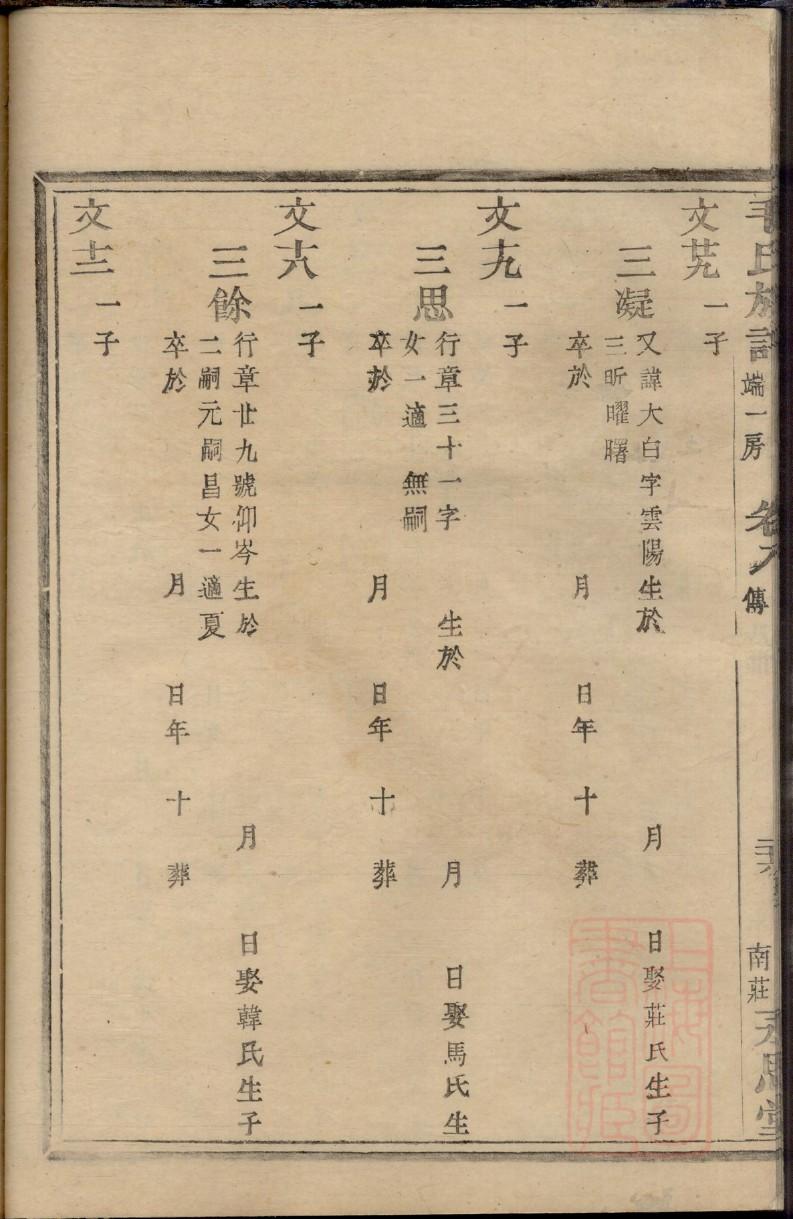 毛氏族譜 端一房 卷八 傳 南莊 永思堂
文芜 一子
三凝 又諱大白字雲陽生於 月 日娶莊氏生子
三昕曜曙
卒於 月 日年 十 葬
文九 一子
三思 行章三十一字 生於 月 日娶馬氏生
女一適 無嗣
卒於 月 日年 十 葬
文六 一子
三餘 行章廿九號仰岑生於 月 日娶韓氏生子
二嗣元嗣昌女一適夏
卒於 月 日年 十 葬
文士 一子